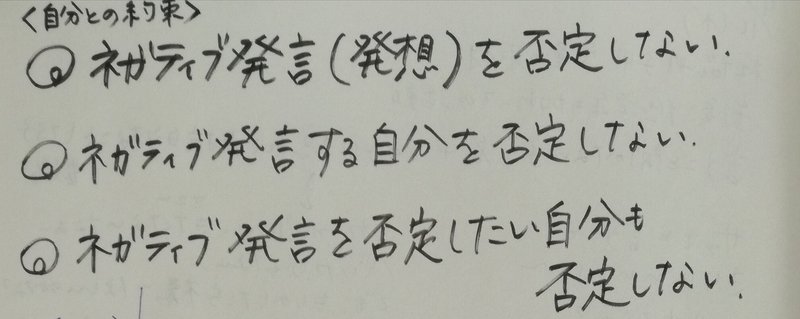 <自分との約束>
◎ ネガティブ発言(発想)を否定しない.
◎ ネガティブ発言する自分を否定しない.
◎ ネガティブ発言を否定したい自分も
否定しない.